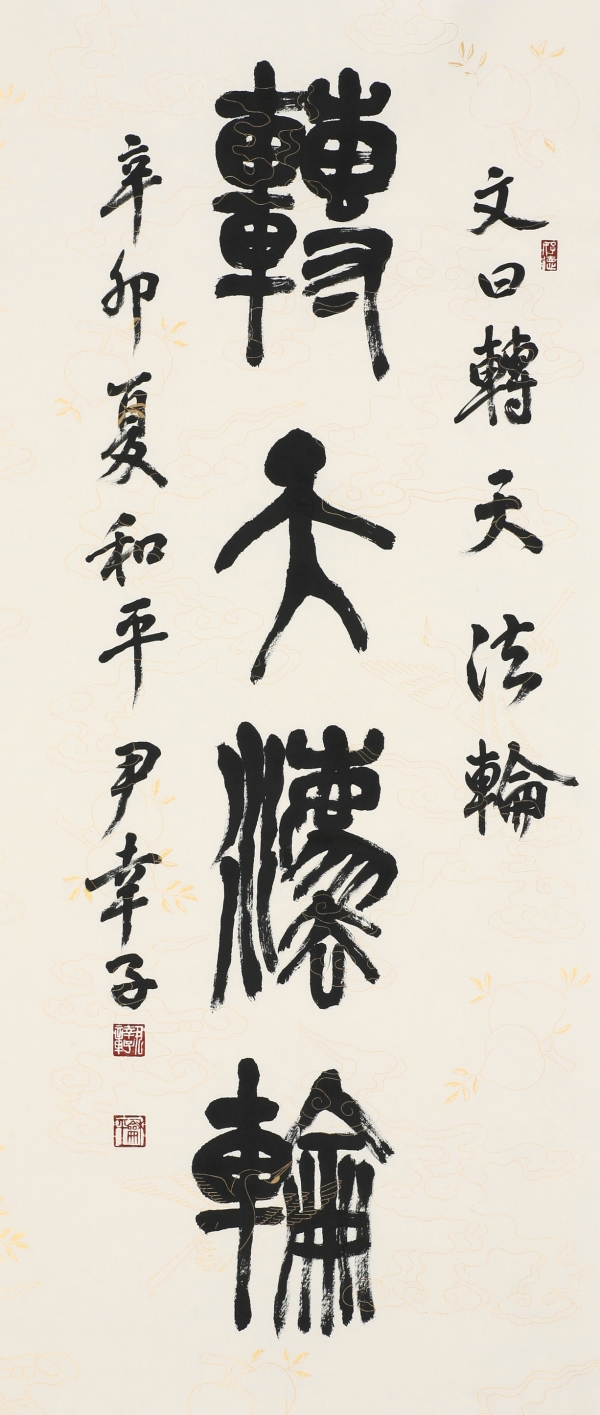 文曰轉天法輪
轉天灋輪
辛卯夏和平尹幸子